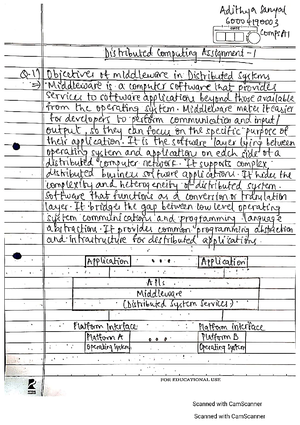 Adithya Sanyal
Comps A1
Distributed Computing Assignment-1
Q.1) Objectives of middleware in Distributed Systems
=> Middleware is a computer software that provides
services to software applications beyond those available
from the operating system. Middleware makes it easier
for developers to perform communication and input/
output, so they can focus on the specific purpose of
their application. It is the software layer lying between
operating system and application on each side of a
distributed computer network. It supports complex
distributed business software applications. It hides the
complexity and heterogeneity of distributed system.
Software that functions as a conversion or translation
layer. It bridges the gap between low level operating
system communications and programming language
abstraction. It provides common programming abstraction
and infrastructure for distributed applications.
Application .... Application
APIs
Middleware
(Distributed System Services)
Platform Interface Platform Interface
Platform A Platform B
Operating System Operating System
FOR EDUCATIONAL USE
Scanned with CamScanner
Scanned with CamScanner